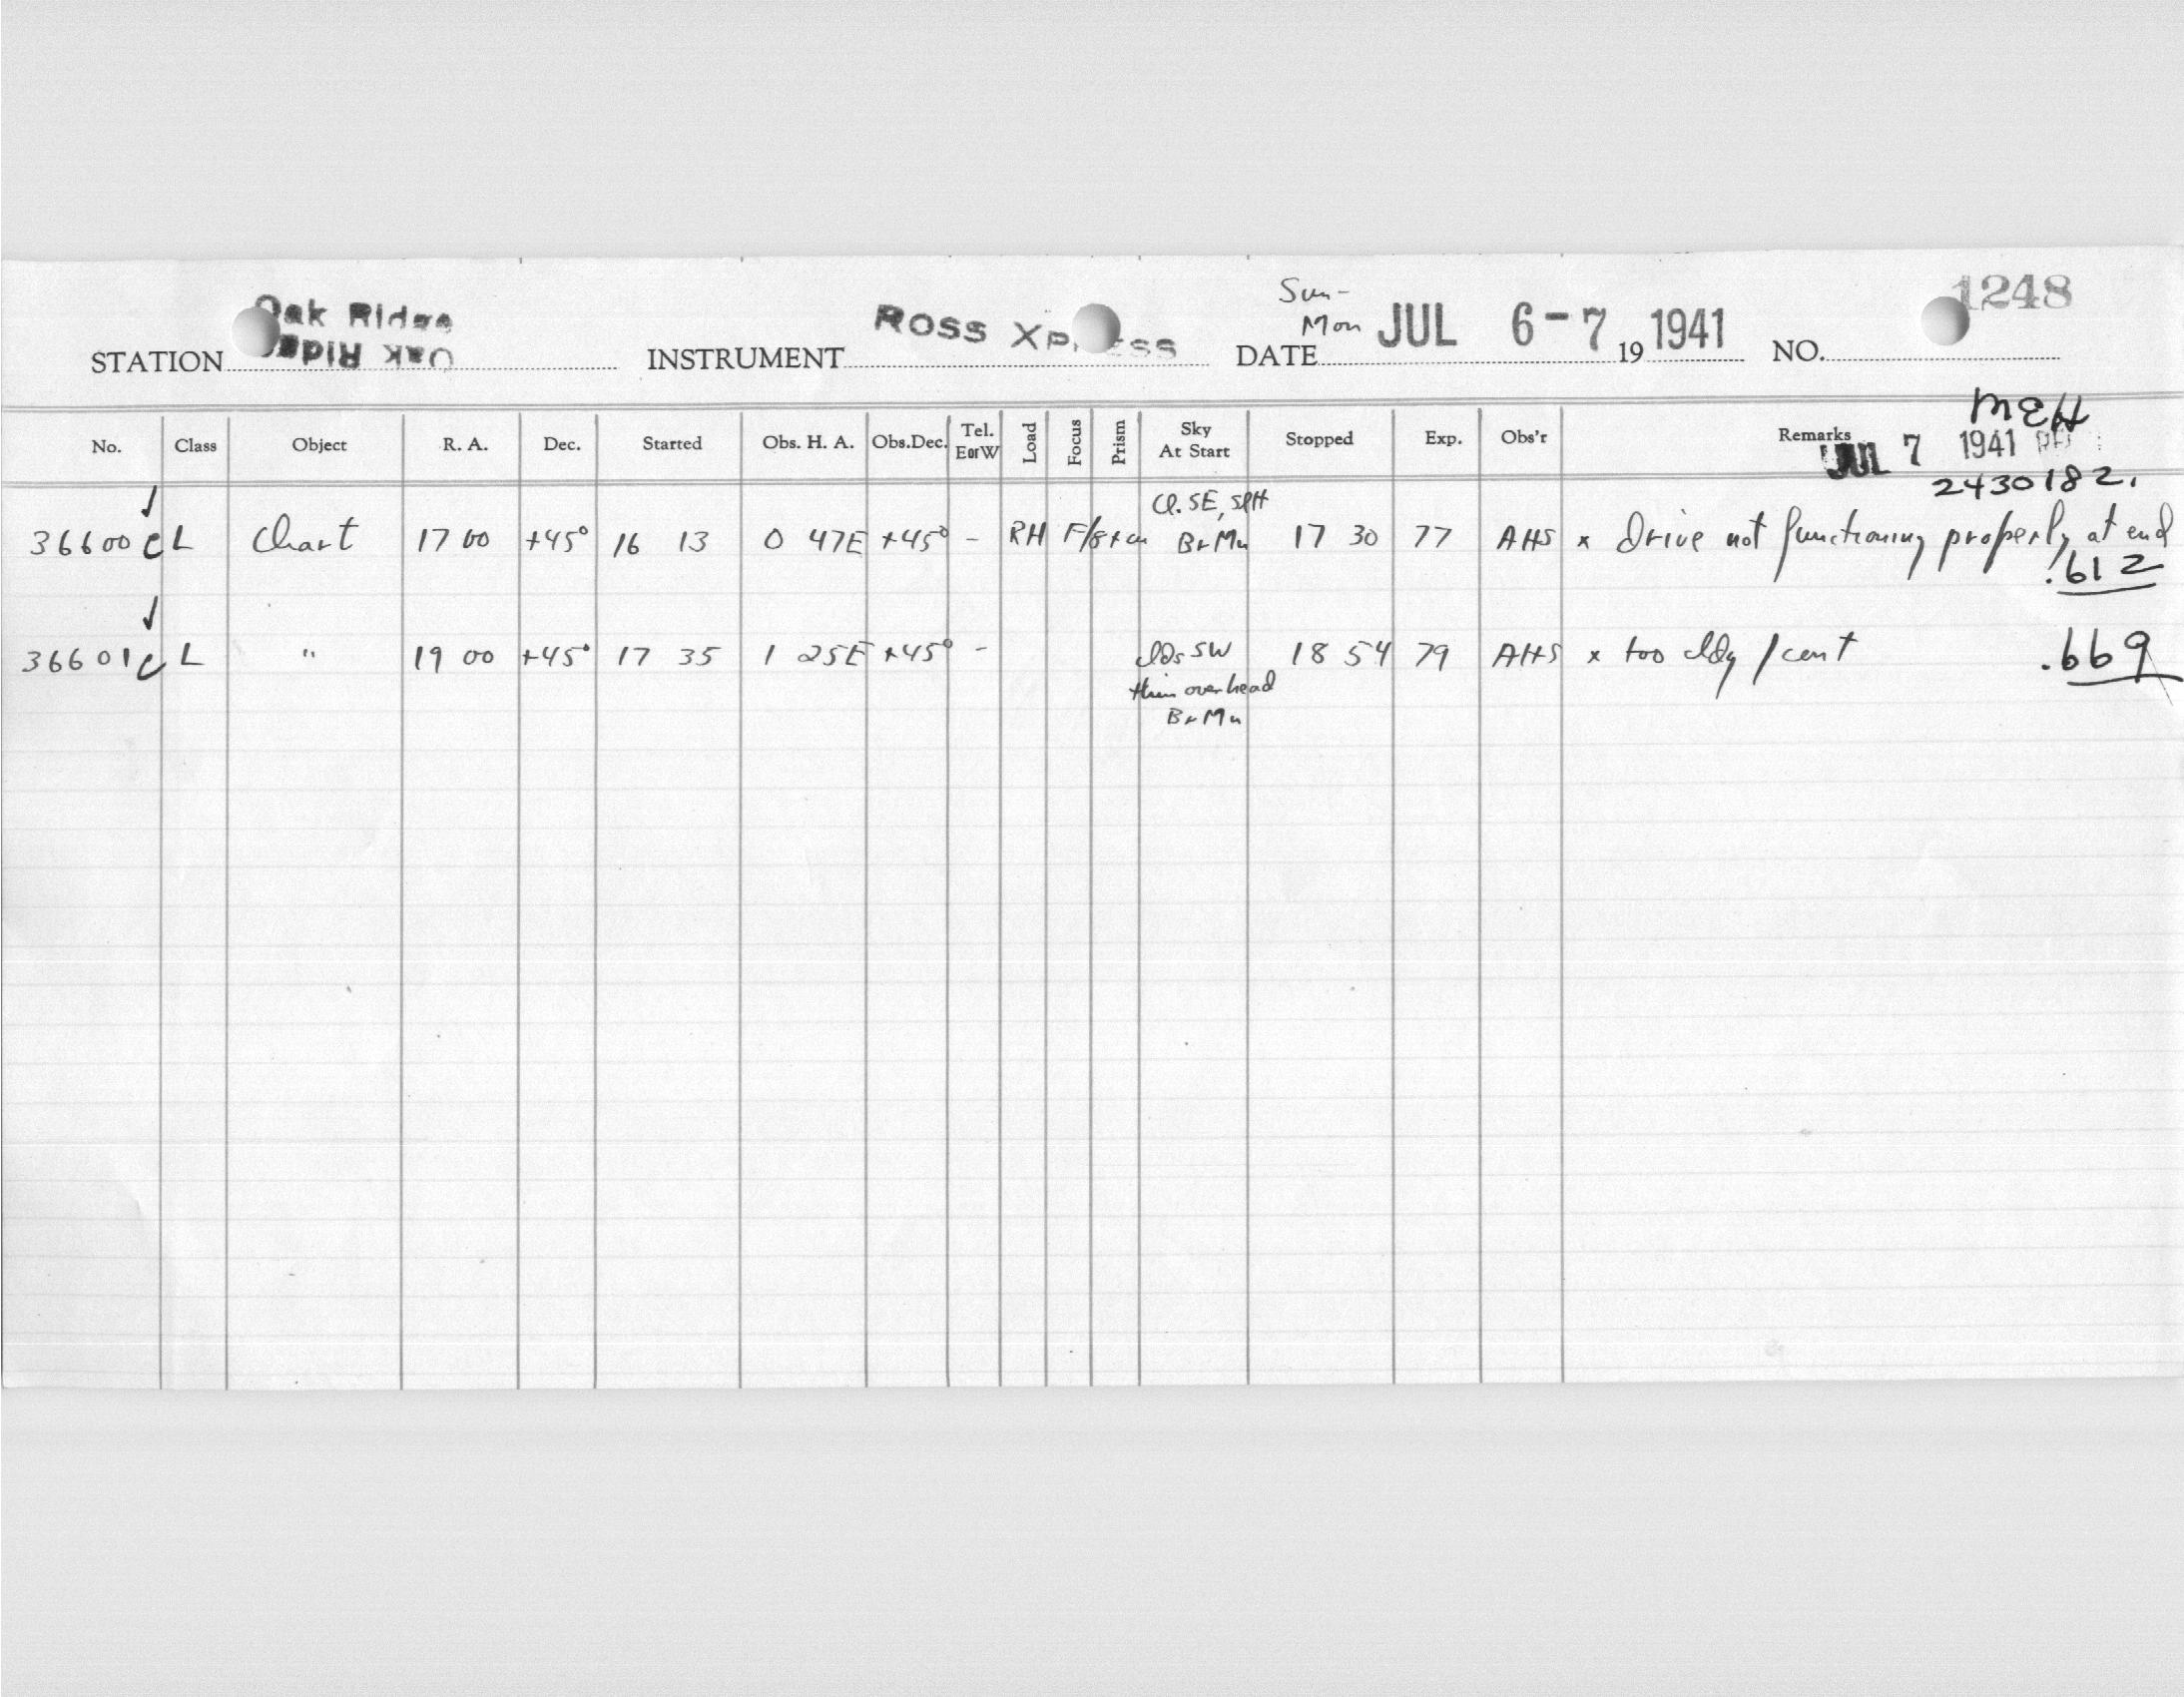 Sun-
Mon
1248
STATION Oak Ridge INSTRUMENT ROSS DATE JUL 6-7 19 1941 NO.
Oak Ridge
MEH
No. Class Object R. A. Dec. Started Obs. H. A. Obs.Dec. Tel. EorW Load Focus Prism Sky At Start Stopped Exp. Obs'r Remarks
JUL 7 1941
2430182.
36600 C L Chart 17 00 +45° 16 13 0 47E +45° - RH Cl. SE, Br Mn 17 30 77 AHS x Drive not functioning properly at end
.612
36601 C L " 19 00 +45° 17 35 1 25E +45° - clds SW thin overhead Br Mn 18 54 79 AHS x too cldy / cent .669